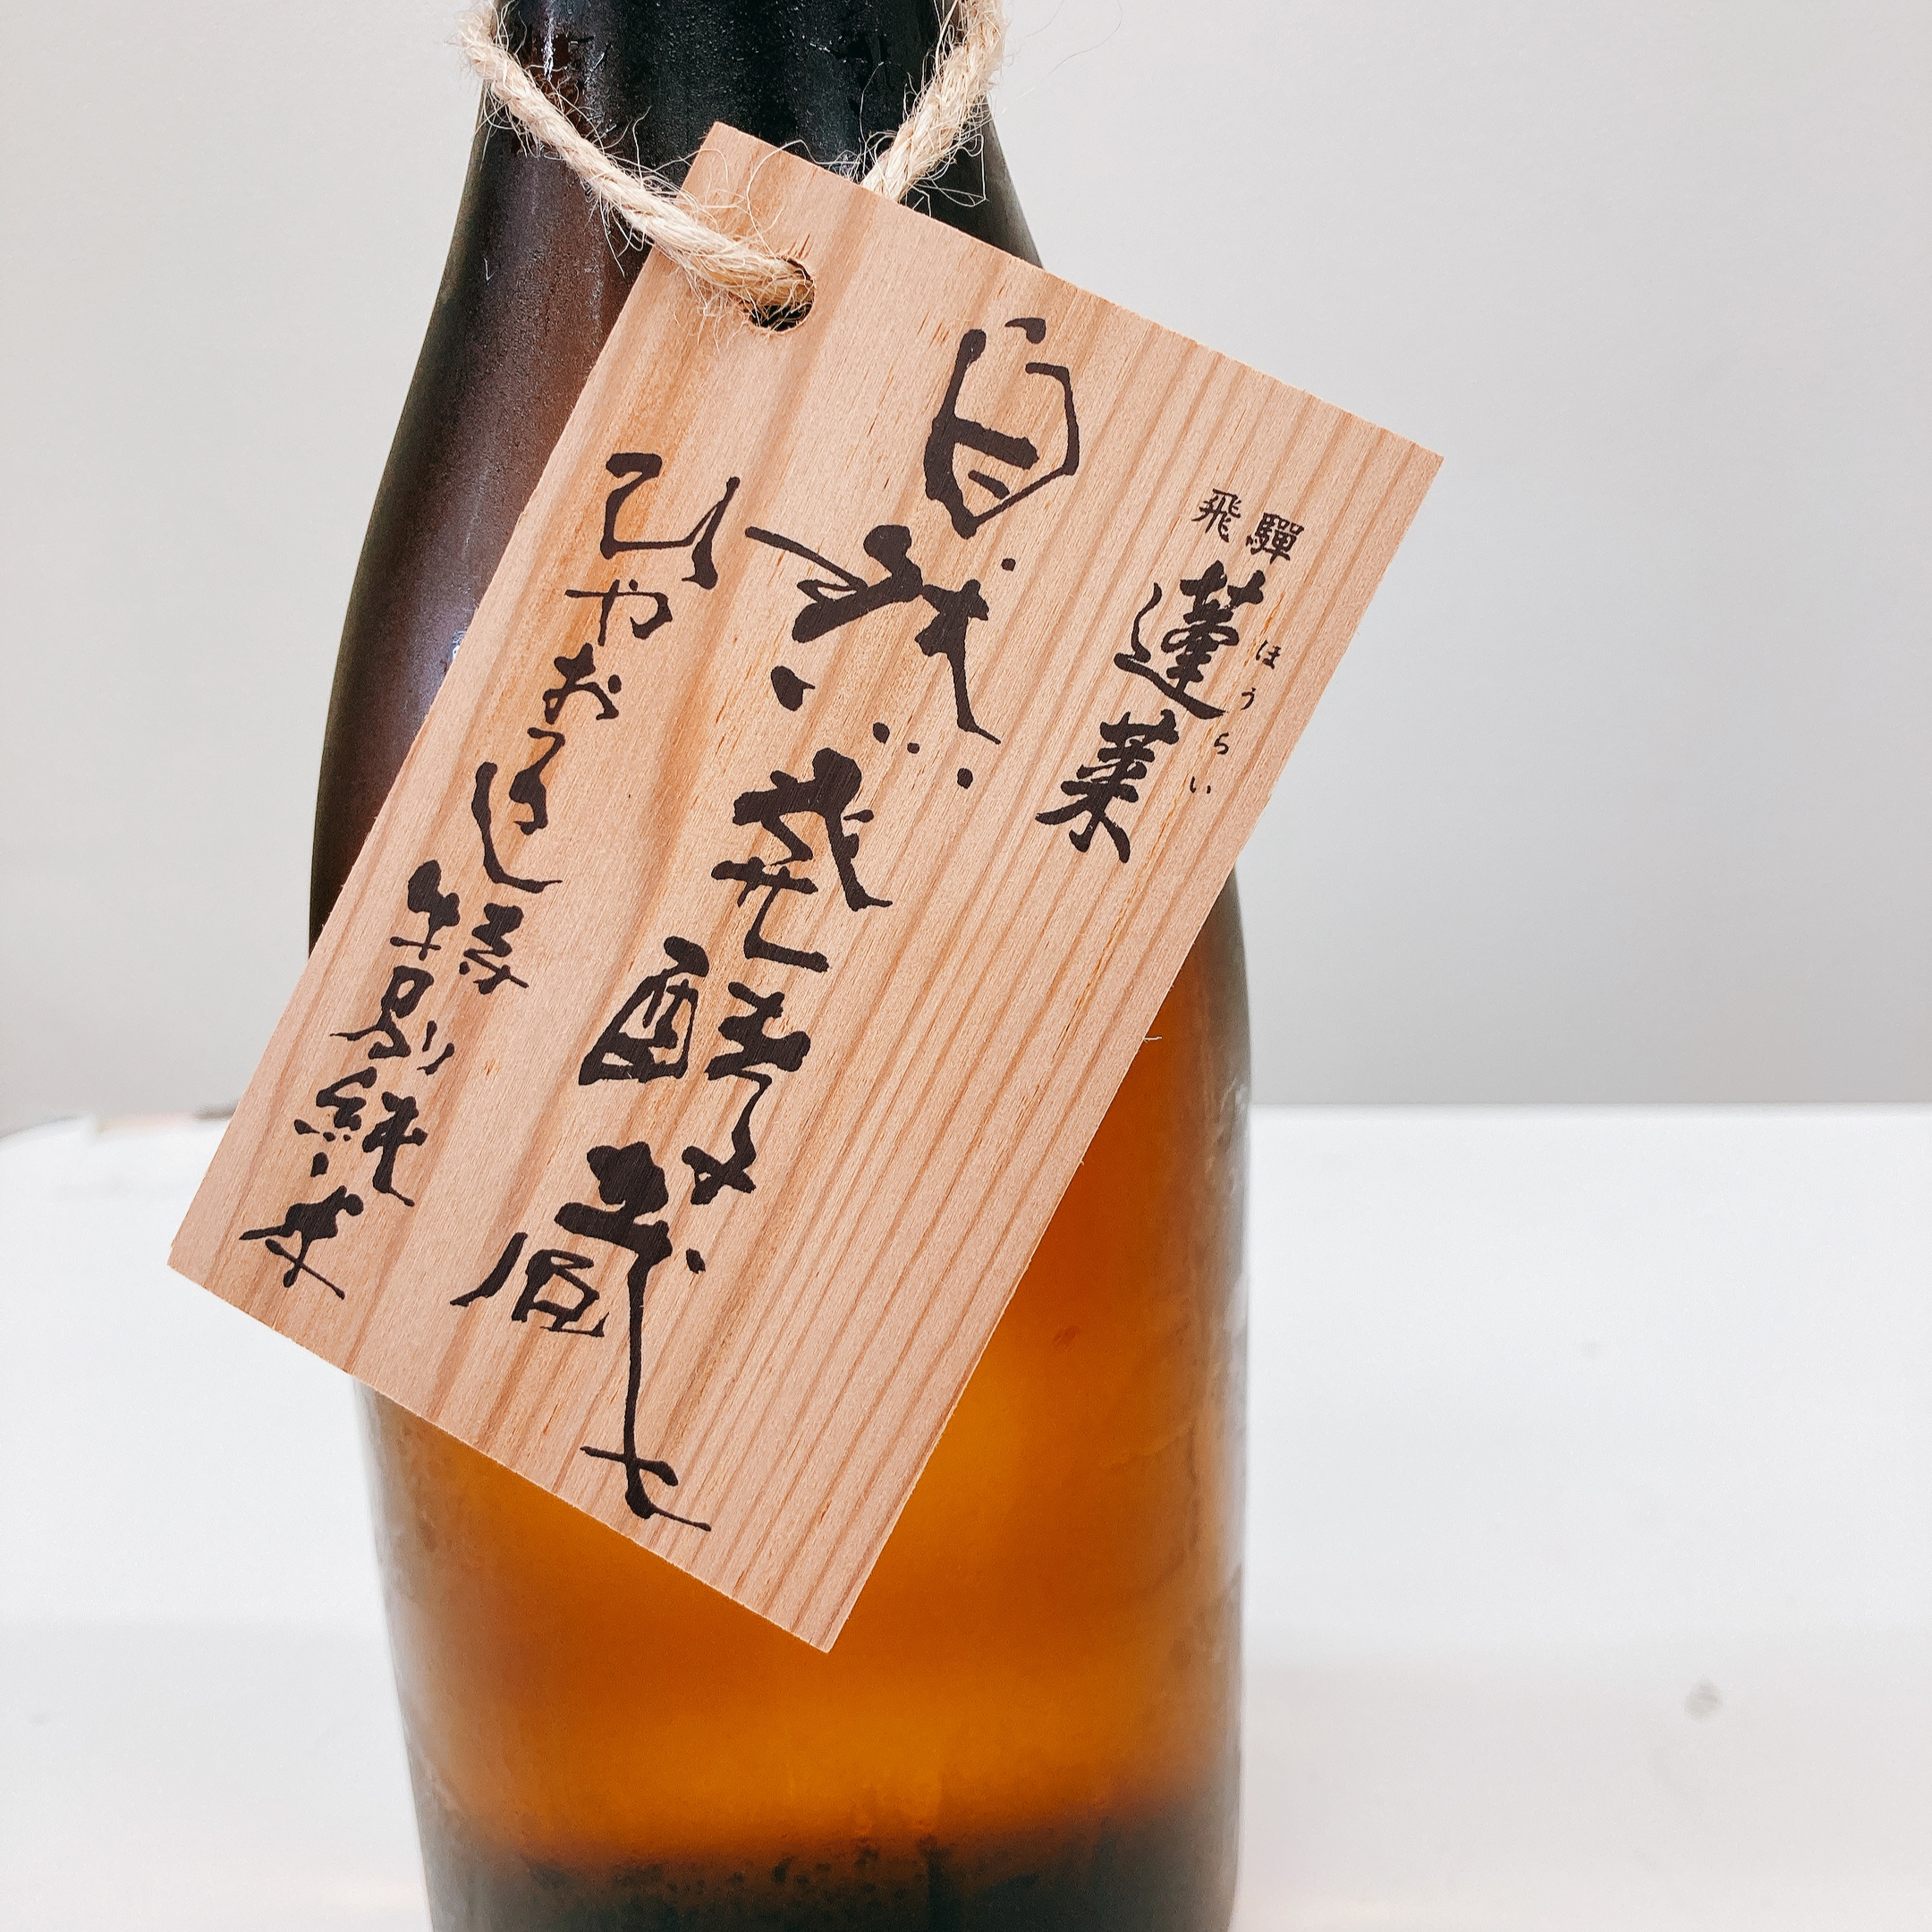 飛騨
蓬莱
ほうらい
自然発酵蔵
ひやおろし 特別純米